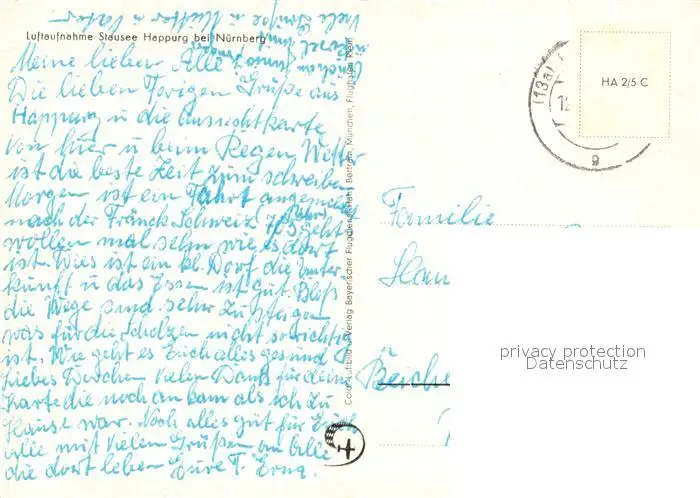 viele Grüße u Mutter u Vater
Luftaufnahme Stausee Happurg bei Nürnberg
Meine lieben Alle
Die lieben Grüße aus
Happurg u die Aussichtkarte
von hier u beim Regen Wetter
ist die beste Zeit zum schreiben
Morgen ist ein Fahrt angemeldet
nach der Fränk Schweiz geht
wollen mal sehn wie es dort
ist. Wies ist ein kl. Dorf die Unter
kunft u das Essen ist gut. Bloß
die Wege sind sehr zu steigen
was für die Scholzen nicht so richtig
ist. Wie geht es Euch alles gesund
liebes vielen Dank für deine
Karte die noch an kam als ich zu
Hause war. Noch alles gut für Euch
alle mit vielen Grüßen an Alle
die dort leben Eure T. Erna.
Color-Luftbild u. Verlag Bayerischer Flugdienst Hans Bertram, München, Flughafen Riem
(13a)
12
g
HA 2/5 C
Familie
privacy protection
Datenschutz